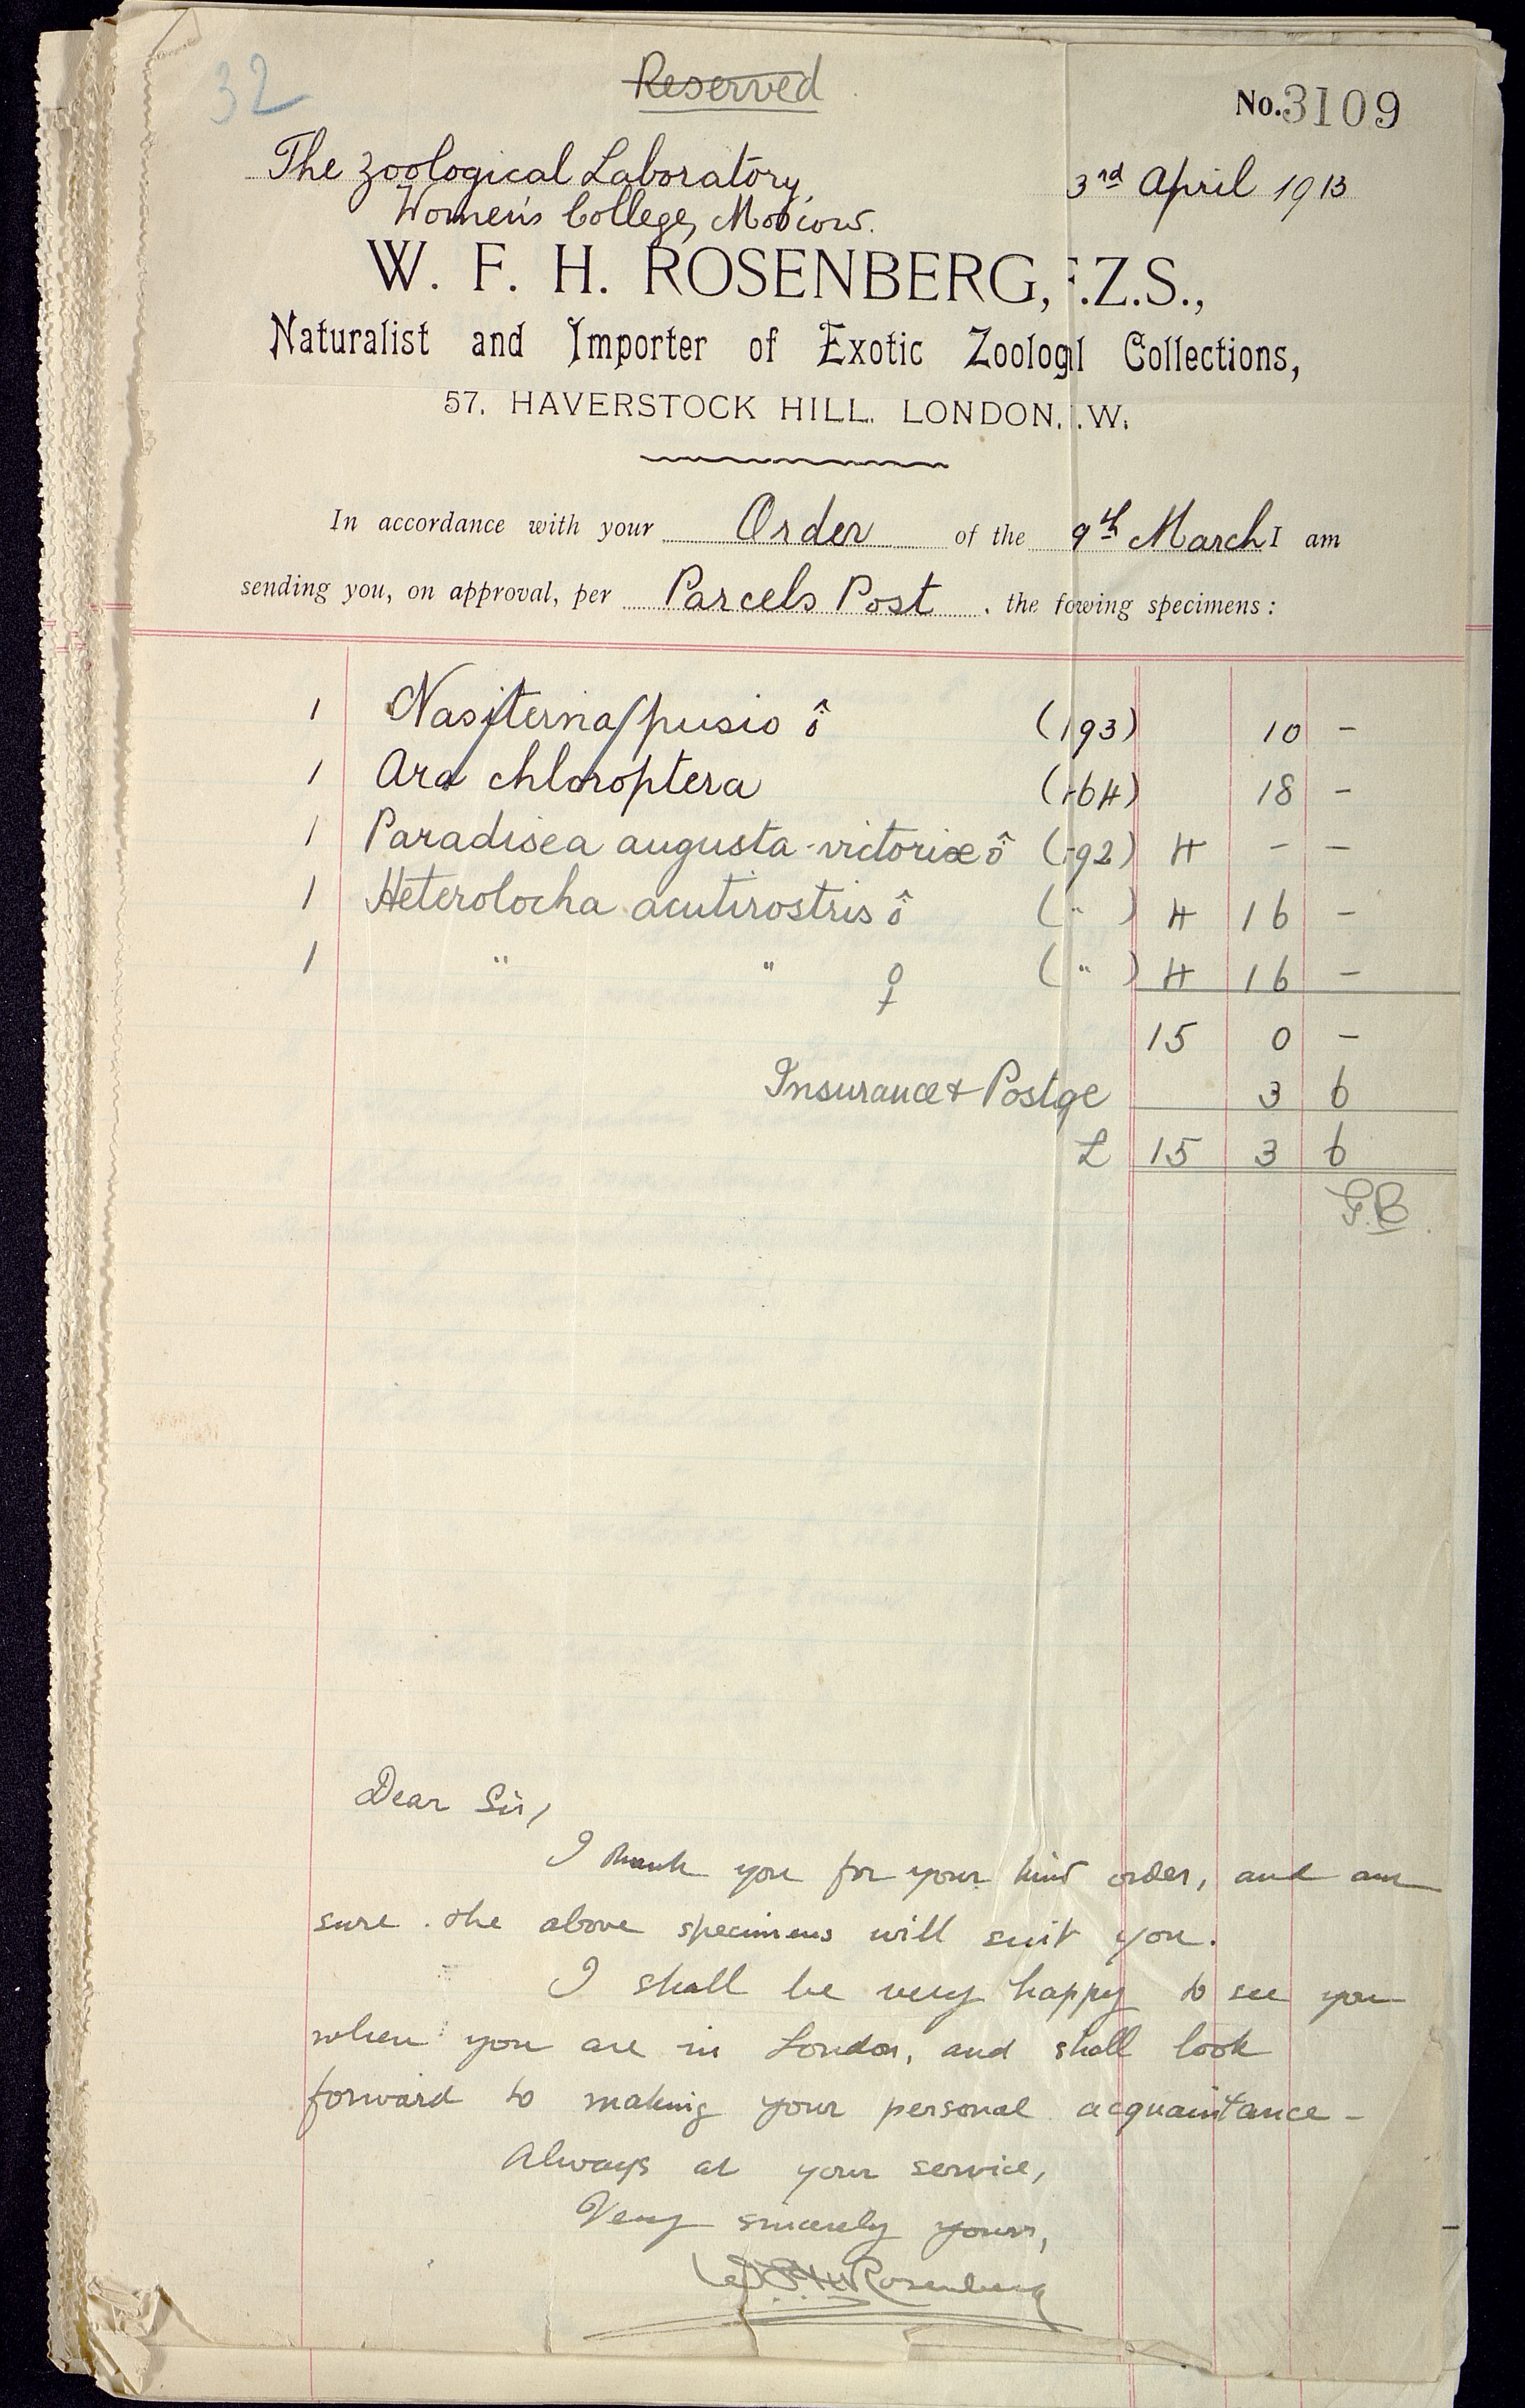 32
Reserved
No. 3109
The Zoological Laboratory,
3rd April 1913
Women's College, Moscow.
W. F. H. ROSENBERG, F.Z.S.,
Naturalist and Importer of Exotic Zoologl Collections,
57. HAVERSTOCK HILL. LONDON. .W.
In accordance with your Order of the 9th March I am
sending you, on approval, per Parcels Post. the fowing specimens:
1 Nasiterna pusio ♂ (193) 10 -
1 Ara chloroptera (164) 18 -
1 Paradisea augusta-victoriæ ♂ (192) 4 - -
1 Heterolocha acutirostris ♂ ( " ) 4 16 -
1 " " ♀ ( " ) 4 16 -
15 0 -
Insurance & Postge 3 6
£ 15 3 6
G.B.
Dear Sir,
I thank you for your kind order, and am
sure the above specimens will suit you.
I shall be very happy to see you
when you are in London, and shall look
forward to making your personal acquaintance -
Always at your service,
Very sincerely yours,
W.F.H. Rosenberg